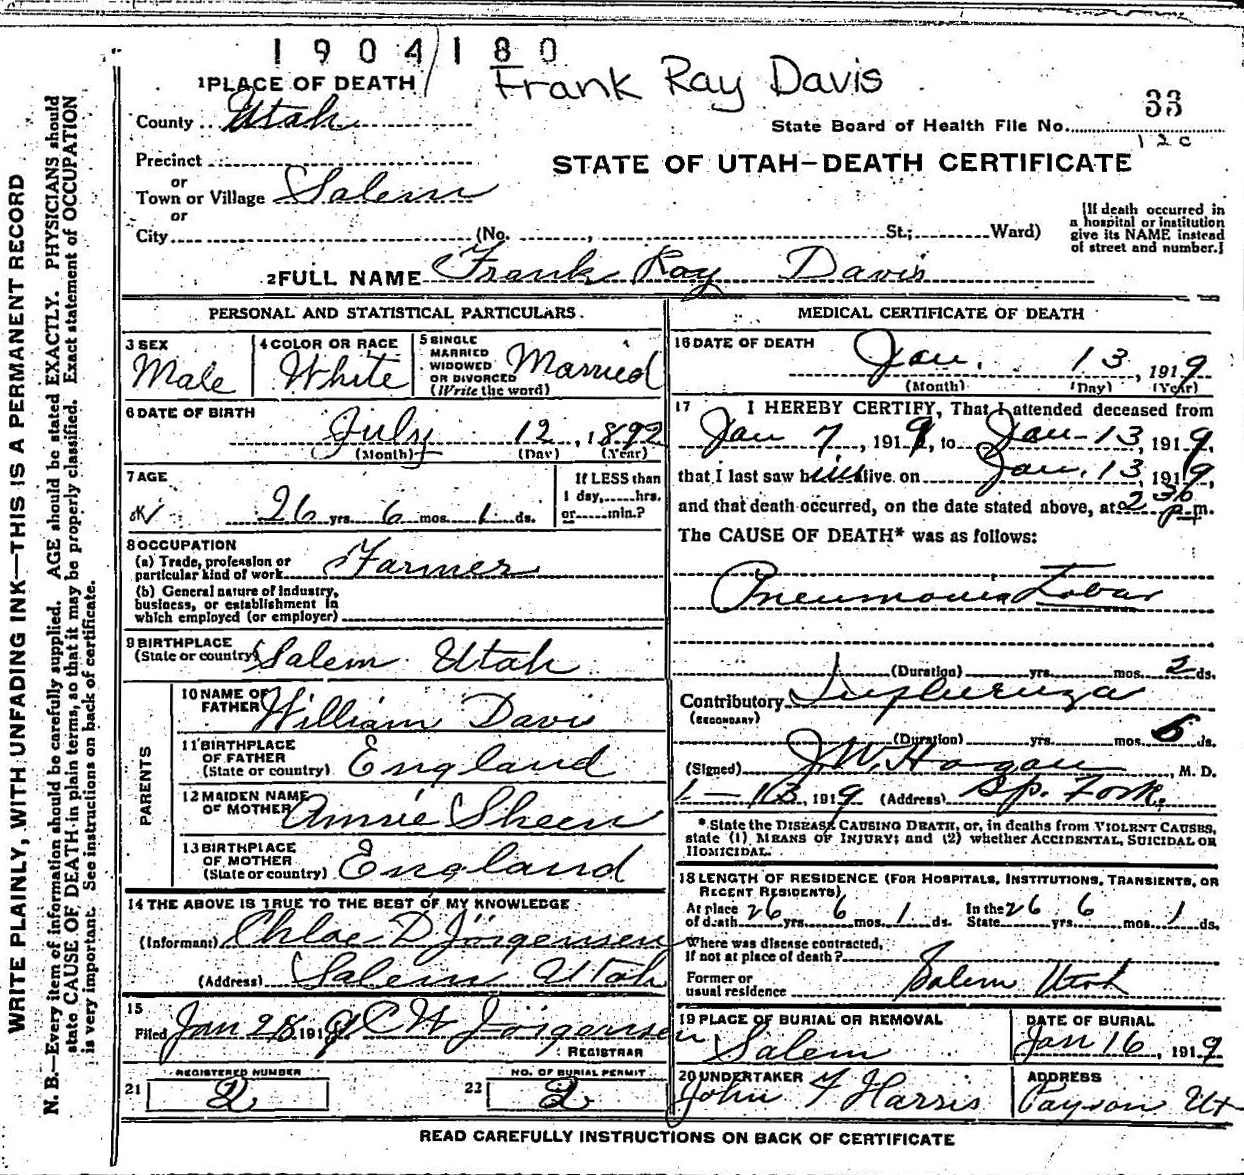 1904180
Frank Ray Davis
1 PLACE OF DEATH
County Utah
33
State Board of Health File No.
12c
Precinct
STATE OF UTAH—DEATH CERTIFICATE
or
Town or Village Salem
or
City (No. , St.; Ward)
[If death occurred in
a hospital or institution
give its NAME instead
of street and number.]
2 FULL NAME Frank Ray Davis
PERSONAL AND STATISTICAL PARTICULARS.
3 SEX
Male
4 COLOR OR RACE
White
5 SINGLE
MARRIED
WIDOWED
OR DIVORCED
(Write the word)
Married
6 DATE OF BIRTH
July 12, 1892
(Month) (Day) (Year)
7 AGE
26 yrs. 6 mos. 1 ds.
If LESS than
1 day, hrs.
or min.?
8 OCCUPATION
(a) Trade, profession or
particular kind of work Farmer
(b) General nature of industry,
business, or establishment in
which employed (or employer)
9 BIRTHPLACE
(State or country) Salem Utah
PARENTS
10 NAME OF
FATHER William Davis
11 BIRTHPLACE
OF FATHER
(State or country) England
12 MAIDEN NAME
OF MOTHER Annie Sheen
13 BIRTHPLACE
OF MOTHER
(State or country) England
14 THE ABOVE IS TRUE TO THE BEST OF MY KNOWLEDGE
(Informant) Chloe D Jörgensen
(Address) Salem Utah
15
Filed Jan 28 1919 C W Jörgensen
REGISTRAR
REGISTERED NUMBER
21 2
NO. OF BURIAL PERMIT
22 2
MEDICAL CERTIFICATE OF DEATH
16 DATE OF DEATH
Jan. 13, 1919
(Month) (Day) (Year)
17 I HEREBY CERTIFY, That I attended deceased from
Jan 7, 1919, to Jan-13, 1919,
that I last saw him alive on Jan. 13, 1919,
and that death occurred, on the date stated above, at 2 30 p.m.
The CAUSE OF DEATH* was as follows:
Pneumonia Lobar
(Duration) yrs. mos. 2 ds.
Contributory Influenza
(SECONDARY)
(Duration) yrs. mos. 6 ds.
(Signed) J. W. Hagan, M. D.
1-13, 1919 (Address) Sp. Fork.
* State the DISEASE CAUSING DEATH, or, in deaths from VIOLENT CAUSES,
state (1) MEANS OF INJURY; and (2) whether ACCIDENTAL, SUICIDAL OR
HOMICIDAL.
18 LENGTH OF RESIDENCE (FOR HOSPITALS, INSTITUTIONS, TRANSIENTS, OR
RECENT RESIDENTS).
At place 26 6 1 In the 26 6 1
of death yrs. mos. ds. State yrs. mos. ds.
Where was disease contracted,
If not at place of death?
Former or
usual residence Salem Utah
19 PLACE OF BURIAL OR REMOVAL
Salem
DATE OF BURIAL
Jan 16, 1919
20 UNDERTAKER
John F Harris
ADDRESS
Payson Ut
READ CAREFULLY INSTRUCTIONS ON BACK OF CERTIFICATE
WRITE PLAINLY, WITH UNFADING INK—THIS IS A PERMANENT RECORD
N. B.—Every item of information should be carefully supplied. AGE should be stated EXACTLY. PHYSICIANS should
state CAUSE OF DEATH in plain terms, so that it may be properly classified. Exact statement of OCCUPATION
is very important. See instructions on back of certificate.